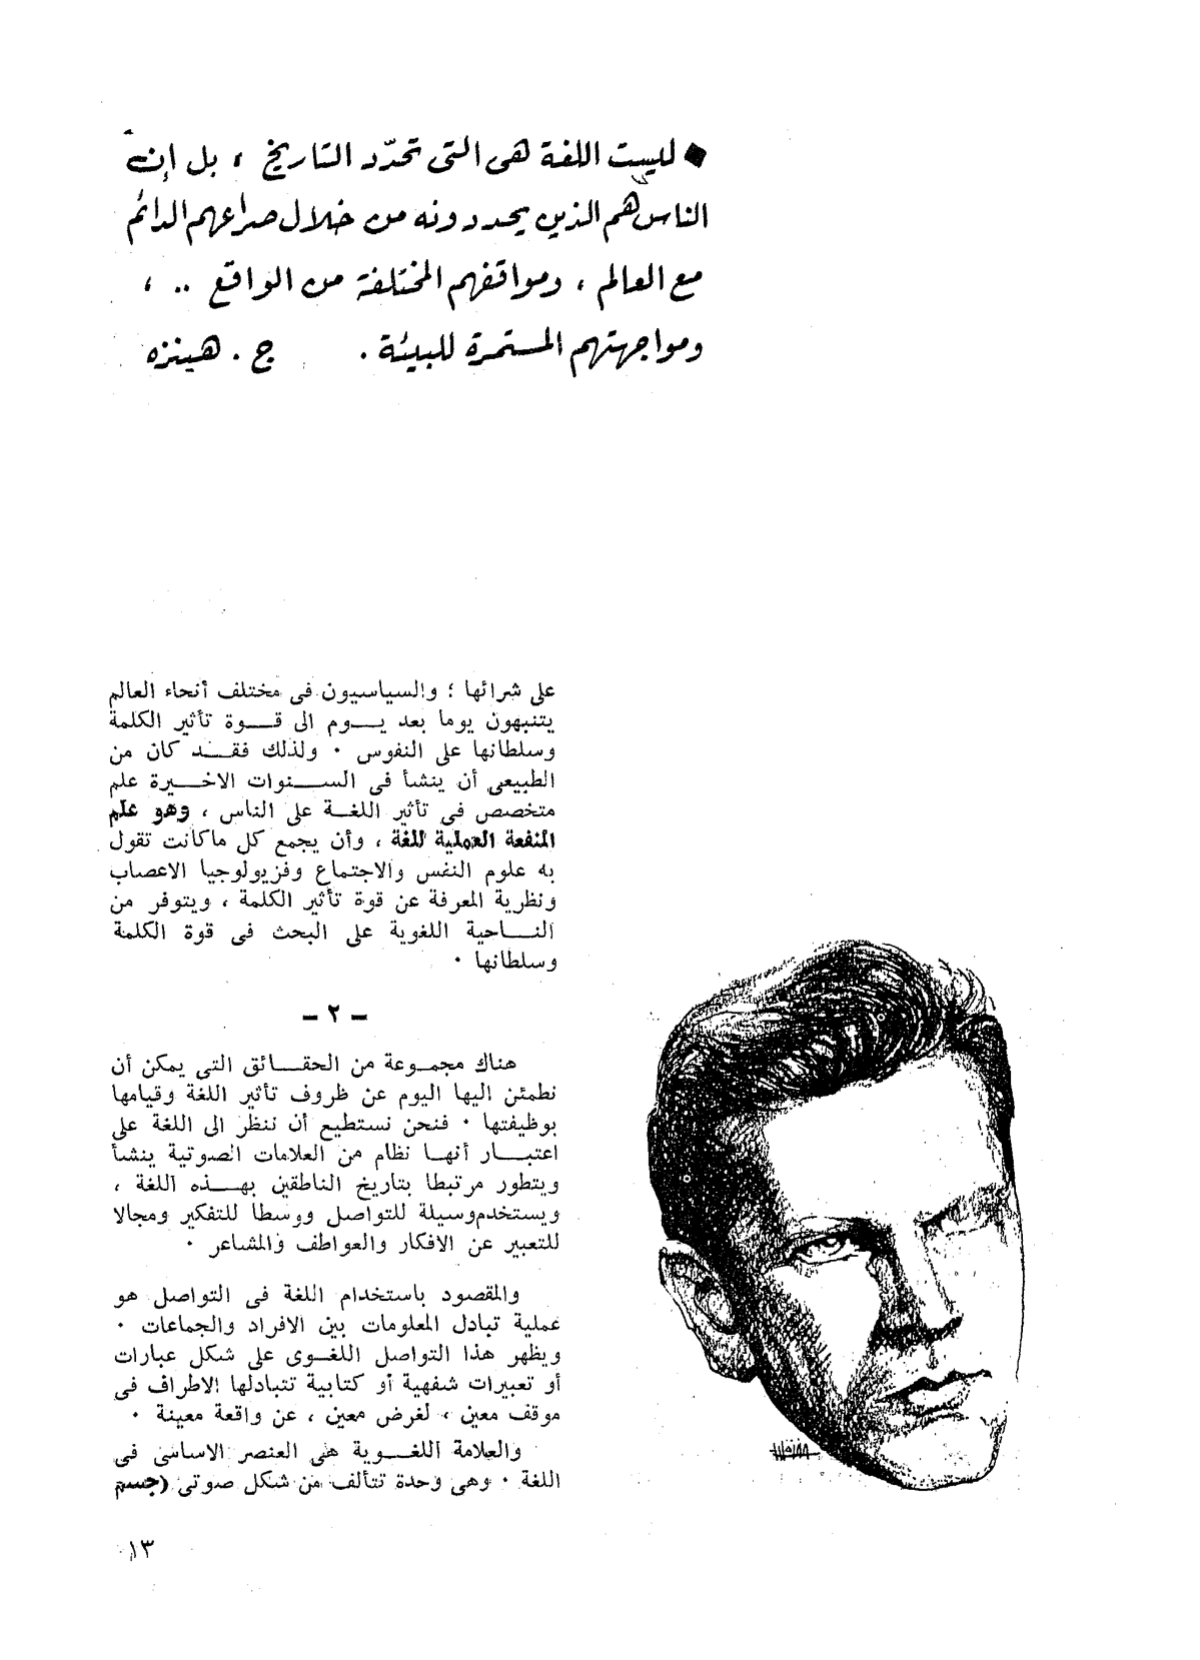 ◆ ليست اللغة هى التى تحدّد التاريخ ، بل إنّ
الناس هم الذين يحددونه من خلال صراعهم الدائم
مع العالم ، ومواقفهم المختلفة من الواقع .. ،
ومواجهتهم المستمرة للبيئة . ج . هينزه
على شرائها ؛ والسياسيون فى مختلف أنحاء العالم
يتنبهون يوما بعد يوم الى قوة تأثير الكلمة
وسلطانها على النفوس . ولذلك فقد كان من
الطبيعى أن ينشأ فى السنوات الاخيرة علم
متخصص فى تأثير اللغة على الناس ، وهو علم
المنفعة العملية للغة ، وأن يجمع كل ماكانت تقول
به علوم النفس والاجتماع وفزيولوجيا الاعصاب
ونظرية المعرفة عن قوة تأثير الكلمة ، ويتوفر من
الناحية اللغوية على البحث فى قوة الكلمة
وسلطانها .
– ٢ –
هناك مجموعة من الحقائق التى يمكن أن
نطمئن اليها اليوم عن ظروف تأثير اللغة وقيامها
بوظيفتها . فنحن نستطيع أن ننظر الى اللغة على
اعتبار أنها نظام من العلامات الصوتية ينشأ
ويتطور مرتبطا بتاريخ الناطقين بهذه اللغة ،
ويستخدم وسيلة للتواصل ووسطا للتفكير ومجالا
للتعبير عن الافكار والعواطف والمشاعر .
والمقصود باستخدام اللغة فى التواصل هو
عملية تبادل المعلومات بين الافراد والجماعات .
ويظهر هذا التواصل اللغوى على شكل عبارات
أو تعبيرات شفهية أو كتابية تتبادلها الاطراف فى
موقف معين ، لغرض معين ، عن واقعة معينة .
والعلامة اللغوية هى العنصر الاساسى فى
اللغة . وهى وحدة تتألف من شكل صوتى (جسم
١٣